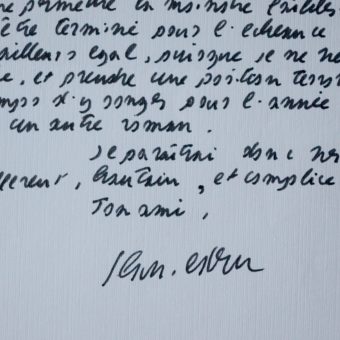 me permettre la moindre faibles
être terminé pour l'échéance
ailleurs égal, puisque je ne ne
e, et prendre une position
mps d'y songer pour l'année
un autre roman.
Je paraîtrai donc
fferent, hautain, et complice
Ton ami,